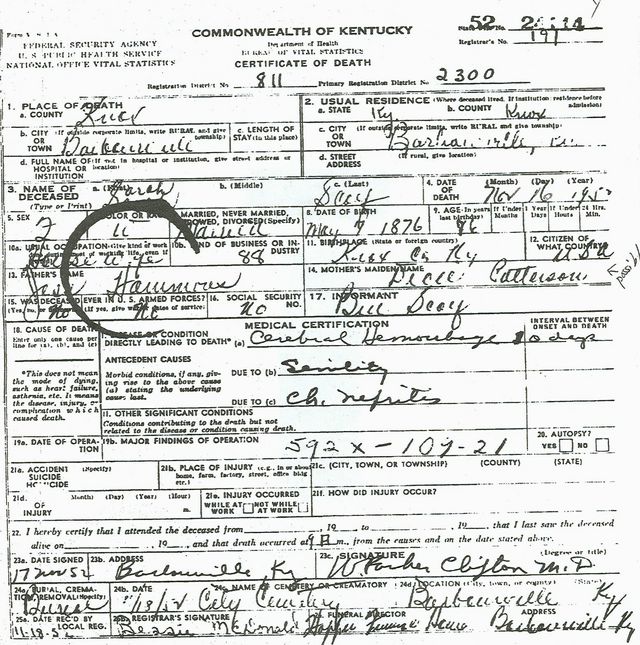 Form V. S. 1 A
COMMONWEALTH OF KENTUCKY
52
Registrar's No. 191
FEDERAL SECURITY AGENCY
U. S. PUBLIC HEALTH SERVICE
NATIONAL OFFICE VITAL STATISTICS
Department of Health
BUREAU OF VITAL STATISTICS
CERTIFICATE OF DEATH
Registration District No. 811 Primary Registration District No. 2300
1. PLACE OF DEATH
a. COUNTY Knox
2. USUAL RESIDENCE (Where deceased lived. If institution: residence before admission)
a. STATE Ky b. COUNTY Knox
b. CITY (If outside corporate limits, write RURAL and give township)
OR TOWN Barbourville
c. LENGTH OF STAY (in this place)
c. CITY (If outside corporate limits, write RURAL and give township)
OR TOWN Barbourville,
d. FULL NAME OF (If not in hospital or institution, give street address or location)
HOSPITAL OR INSTITUTION
d. STREET ADDRESS (If rural, give location)
3. NAME OF DECEASED (Type or Print)
a. (First) Sarah b. (Middle) c. (Last)
4. DATE OF DEATH (Month) (Day) (Year) Nov 16 1952
5. SEX F
COLOR OR RACE
MARRIED, NEVER MARRIED, WIDOWED, DIVORCED (Specify)
8. DATE OF BIRTH May 7 1876
9. AGE (In years last birthday) 76 If Under 1 Year If Under 24 Hrs.
10a. USUAL OCCUPATION (Give kind of work
Housewife
10b. KIND OF BUSINESS OR INDUSTRY 88
11. BIRTHPLACE (State or foreign country) Knox Co Ky
12. CITIZEN OF WHAT COUNTRY? USA
13. FATHER'S NAME Hammons
14. MOTHER'S MAIDEN NAME Patterson
15. WAS DECEASED EVER IN U. S. ARMED FORCES?
(Yes, no, or unknown) (If yes, give war or dates of service) No No
16. SOCIAL SECURITY NO. No
17. INFORMANT Bill
18. CAUSE OF DEATH
Enter only one cause per line for (a), (b), and (c)
MEDICAL CERTIFICATION
INTERVAL BETWEEN ONSET AND DEATH
I. DISEASE OR CONDITION
DIRECTLY LEADING TO DEATH* (a) Cerebral Hemorrhage 10 days
ANTECEDENT CAUSES
*This does not mean the mode of dying, such as heart failure, asthenia, etc. It means the disease, injury, or complication which caused death.
Morbid conditions, if any, giving rise to the above cause (a) stating the underlying cause last.
DUE TO (b) Senility
DUE TO (c) Ch. Nefritis
II. OTHER SIGNIFICANT CONDITIONS
Conditions contributing to the death but not related to the disease or condition causing death.
592x-107-21
19a. DATE OF OPERATION
19b. MAJOR FINDINGS OF OPERATION
20. AUTOPSY? YES NO
21a. ACCIDENT SUICIDE HOMICIDE (Specify)
21b. PLACE OF INJURY (e.g., in or about home, farm, factory, street, office bldg., etc.)
21c. (CITY, TOWN, OR TOWNSHIP) (COUNTY) (STATE)
21d. OF INJURY (Month) (Day) (Year) (Hour) m.
21e. INJURY OCCURRED WHILE AT WORK NOT WHILE AT WORK
21f. HOW DID INJURY OCCUR?
22. I hereby certify that I attended the deceased from , 19 to , 19 , that I last saw the deceased
alive on , 19 , and that death occurred at m., from the causes and on the date stated above.
23a. DATE SIGNED 17 Nov 52
23b. ADDRESS Barbourville, Ky
23c. SIGNATURE (Degree or title) Parker Clifton M.D.
24a. BURIAL, CREMATION, REMOVAL (Specify) Burial
24b. DATE 11/18/52
24c. NAME OF CEMETERY OR CREMATORY City Cemetery
24d. LOCATION (City, town, or county) (State) Barbourville Ky
25a. DATE REC'D BY LOCAL REG. 11-18-52
25b. REGISTRAR'S SIGNATURE Bessie McDonald
FUNERAL DIRECTOR Hopper Funeral Home
ADDRESS Barbourville Ky